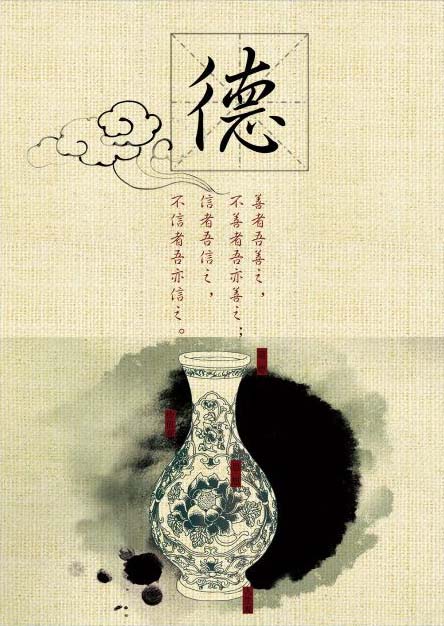 德
善者吾善之，
不善者吾亦善之；
信者吾信之，
不信者吾亦信之。